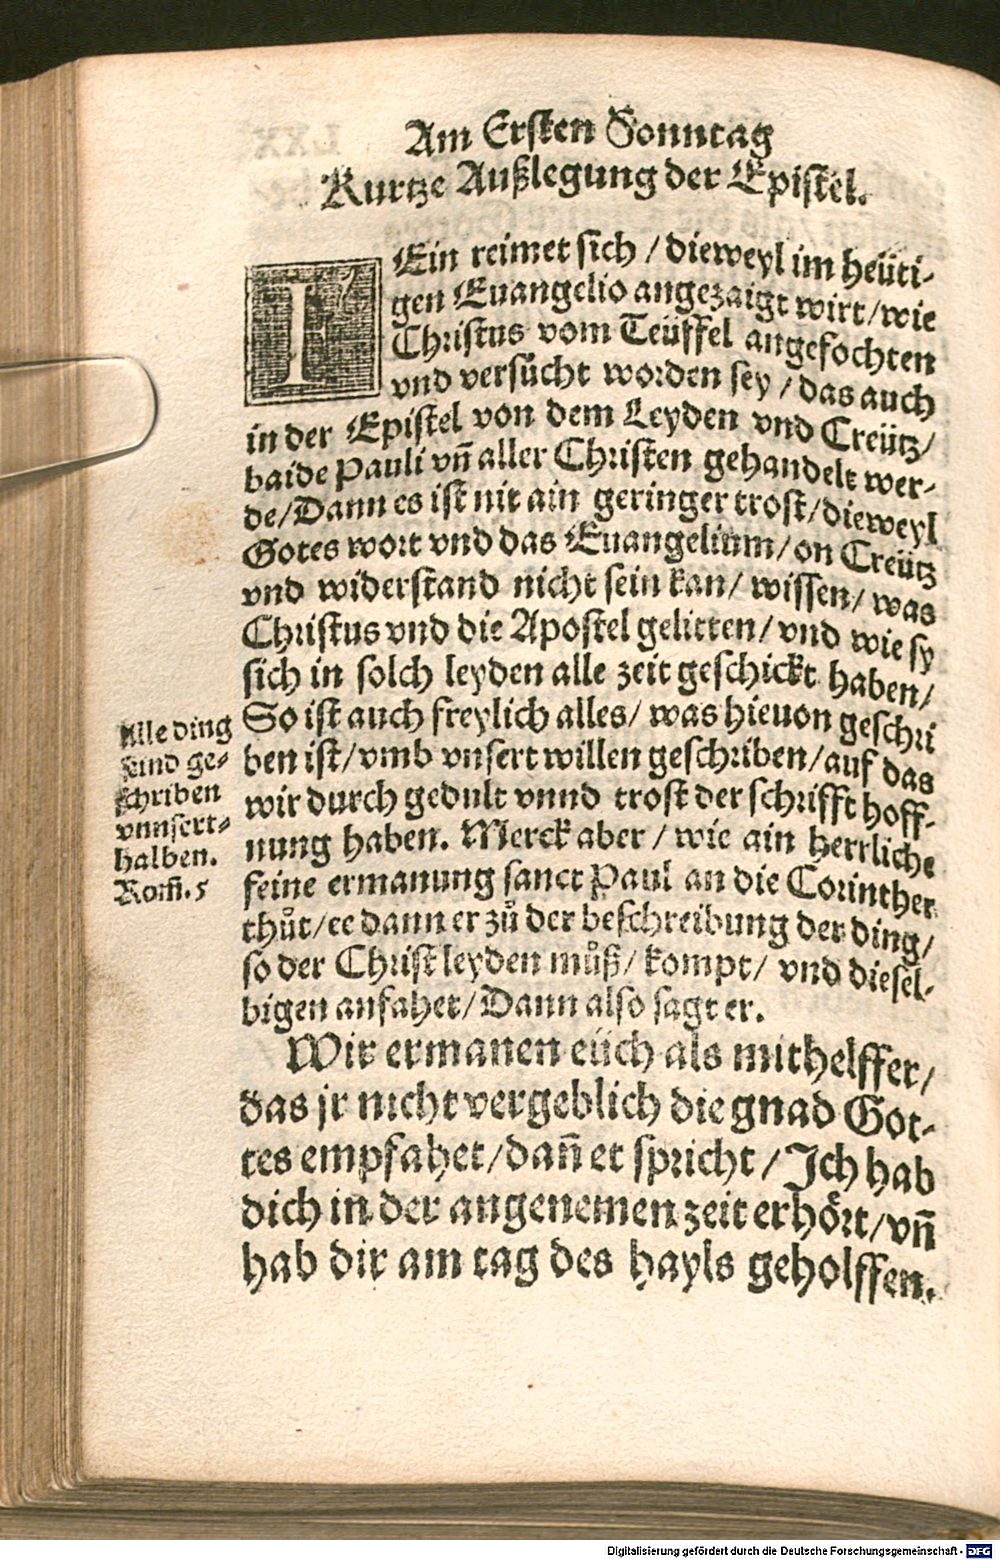 Am Ersten Sonntag
Kurtze Außlegung der Epistel.
FEin reimet sich / dieweyl im heüti-
gen Euangelio angezaigt wirt / wie
Christus vom Teüffel angefochten
vnd versůcht worden sey / das auch
in der Epistel von dem Leyden vnd Creütz /
baide Pauli vñ aller Christen gehandelt wer-
de / Dann es ist nit ain geringer trost / dieweyl
Gotes wort vnd das Euangelium / on Creütz
vnd widerstand nicht sein kan / wissen / was
Christus vnd die Apostel gelitten / vnd wie sy
sich in solch leyden alle zeit geschickt haben /
So ist auch freylich alles / was hieuon geschri
ben ist / vmb vnsert willen geschriben / auf das
wir durch gedult vnnd trost der schrifft hoff-
nung haben. Merck aber / wie ain herrliche
feine ermanung sanct Paul an die Corinther
thůt / ee dann er zů der beschreibung der ding /
so der Christ leyden můß / kompt / vnd diesel-
bigen anfahet / Dann also sagt er.
Wir ermanen eüch als mithelffer /
das jr nicht vergeblich die gnad Got-
tes empfahet / dañ er spricht / Ich hab
dich in der angenemen zeit erhört / vñ
hab dir am tag des hayls geholffen.
Alle ding
sind ge-
schriben
vnnsert-
halben.
Rom̃. 5
Digitalisierung gefördert durch die Deutsche Forschungsgemeinschaft - DFG